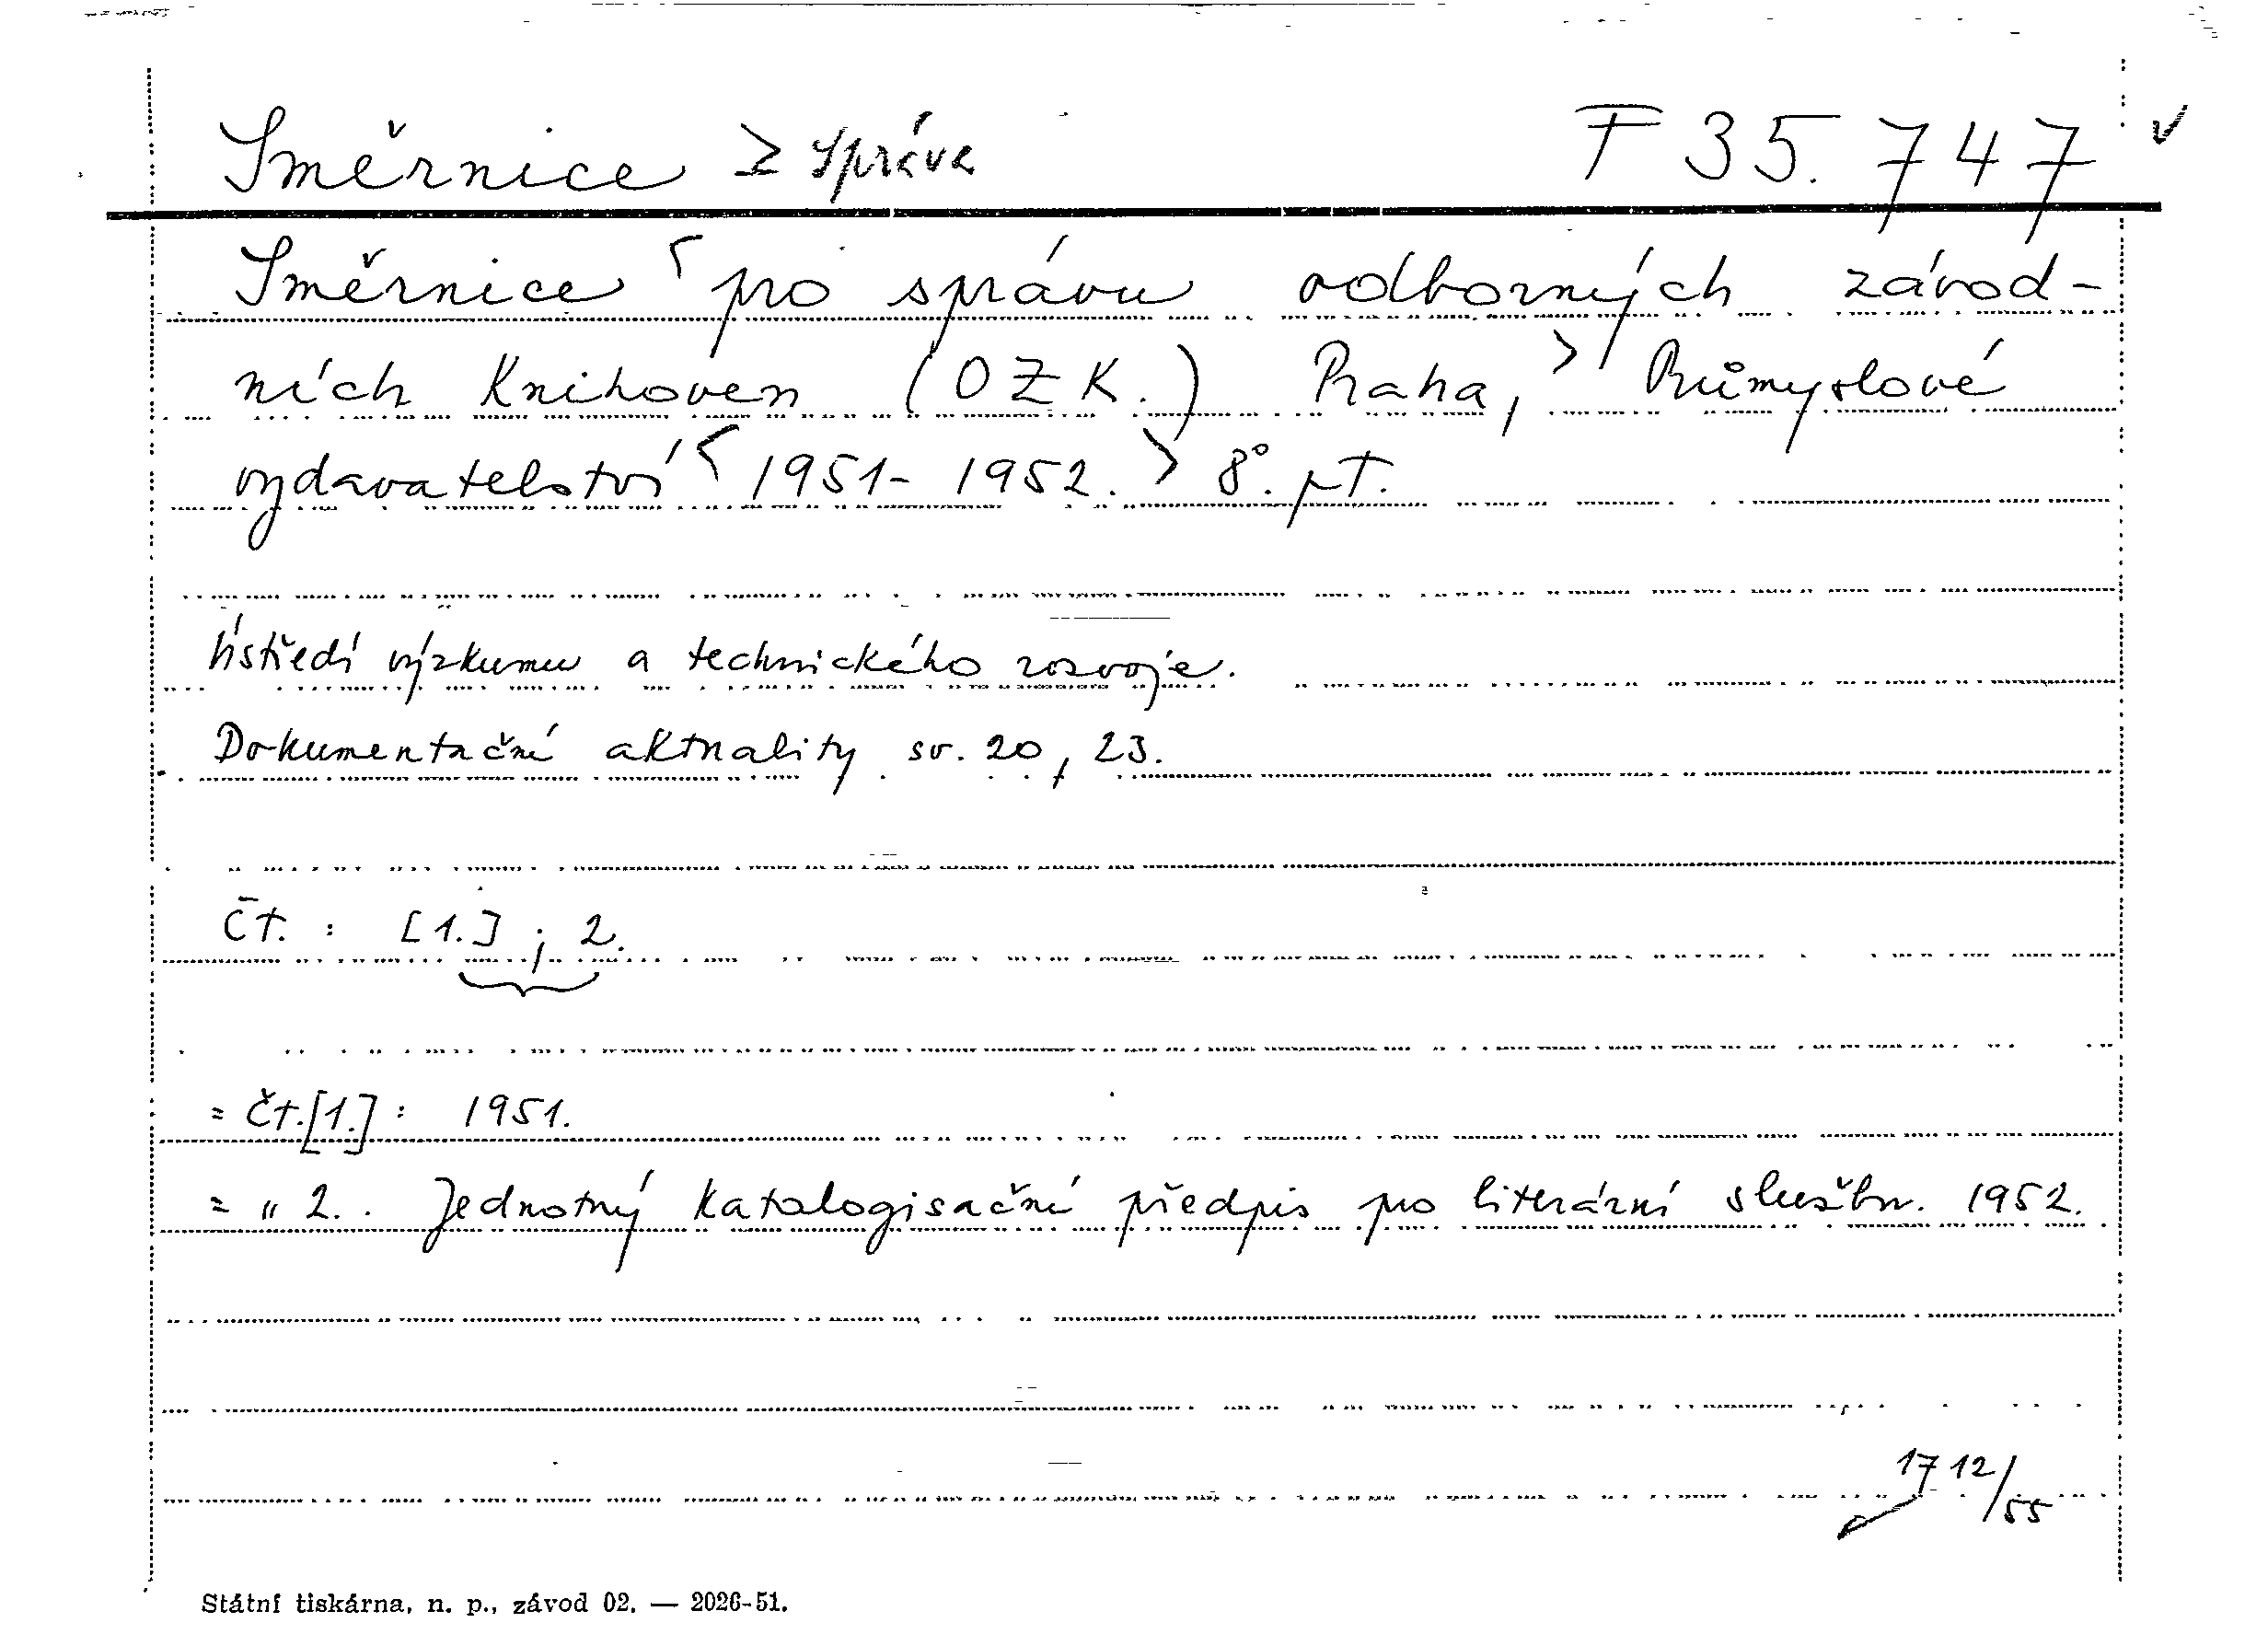 Směrnice > správa F 35.747 v
Směrnice < pro správu odborných závod-
ních knihoven (OZK.) Praha, > Průmyslové
vydavatelství < 1951-1952. > 8°. pT.
Ústředí výzkumu a technického rozvoje.
Dokumentační aktuality sv. 20, 23.
Čt. : [1.] ; 2.
= Čt.[1.] : 1951.
= " 2. . Jednotný katalogisační předpis pro literární službu. 1952.
1712/55
Státní tiskárna, n. p., závod 02. — 2026-51.